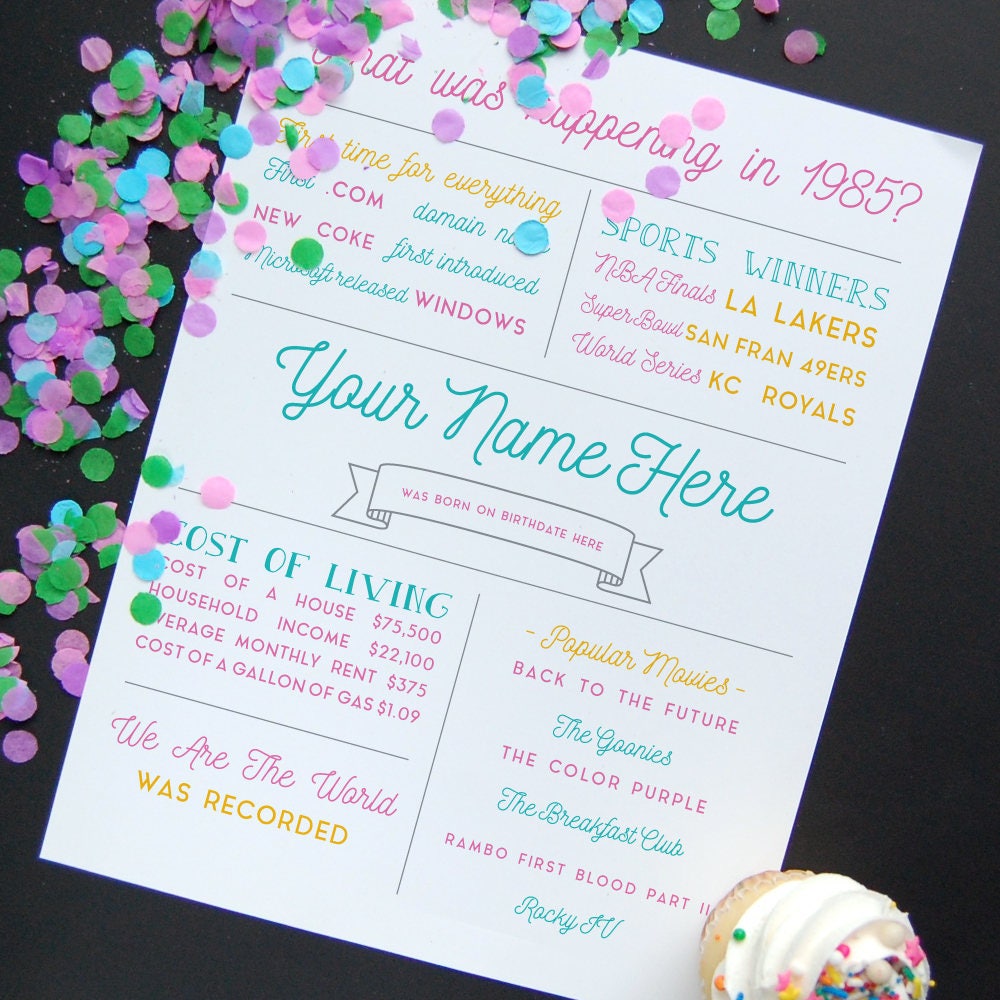 What was happening in 1985?
First time for everything
First .COM domain
NEW COKE first introduced
Microsoft released WINDOWS
SPORTS WINNERS
NBA Finals LA LAKERS
Super Bowl SAN FRAN 49ERS
World Series KC ROYALS
Your Name Here
WAS BORN ON BIRTHDATE HERE
COST OF LIVING
COST OF A HOUSE $75,500
HOUSEHOLD INCOME $22,100
AVERAGE MONTHLY RENT $375
COST OF A GALLON OF GAS $1.09
We Are The World
WAS RECORDED
- Popular Movies -
BACK TO THE FUTURE
The Goonies
THE COLOR PURPLE
The Breakfast Club
RAMBO FIRST BLOOD PART II
Rocky IV